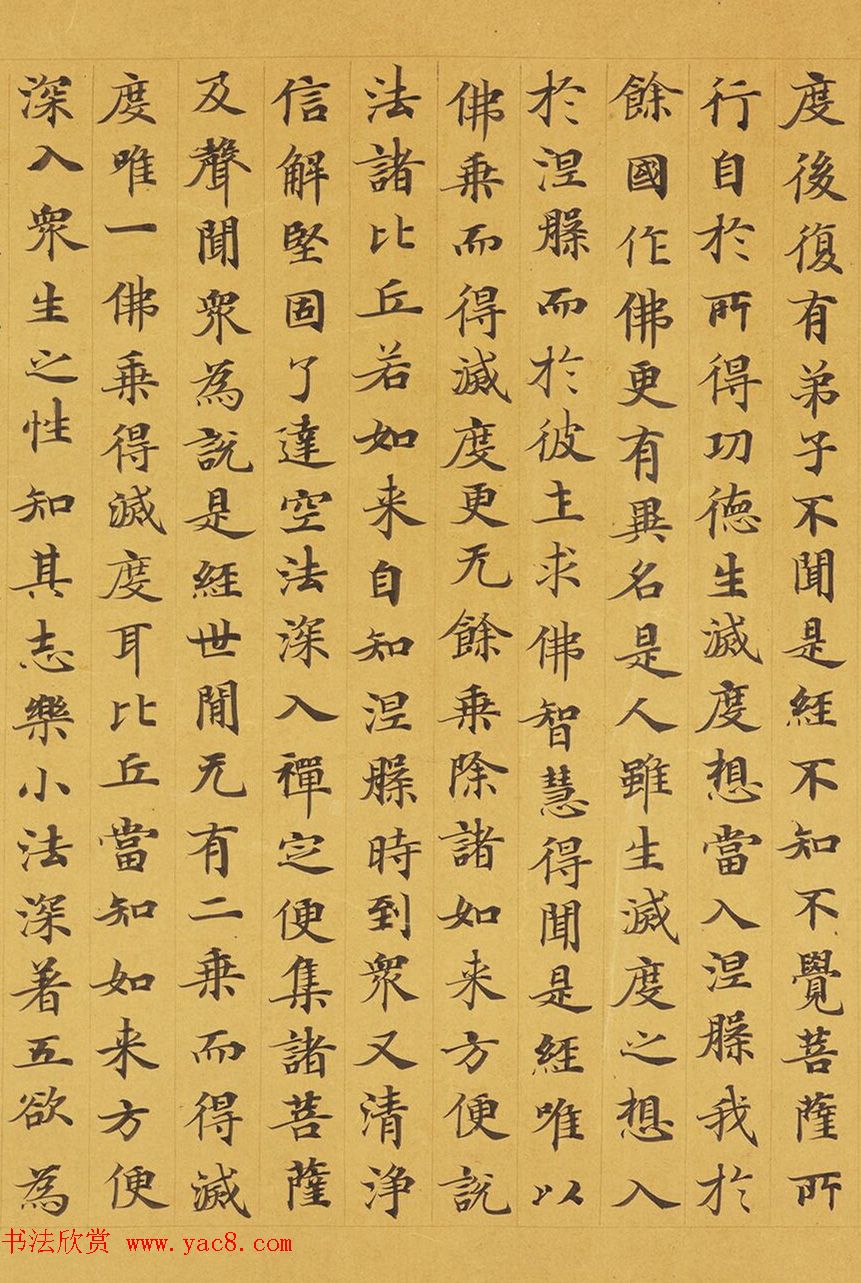 度後復有弟子不聞是經不知不覺菩薩所
行自於所得功德生滅度想當入涅槃我於
餘國作佛更有異名是人雖生滅度之想入
於涅槃而於彼土求佛智慧得聞是經唯以
佛乘而得滅度更无餘乘除諸如来方便說
法諸比丘若如来自知涅槃時到衆又清淨
信解堅固了達空法深入禪定便集諸菩薩
及聲聞衆為說是經世間无有二乘而得滅
度唯一佛乘得滅度耳比丘當知如来方便
深入衆生之性知其志樂小法深著五欲為
书法欣赏 www.yac8.com